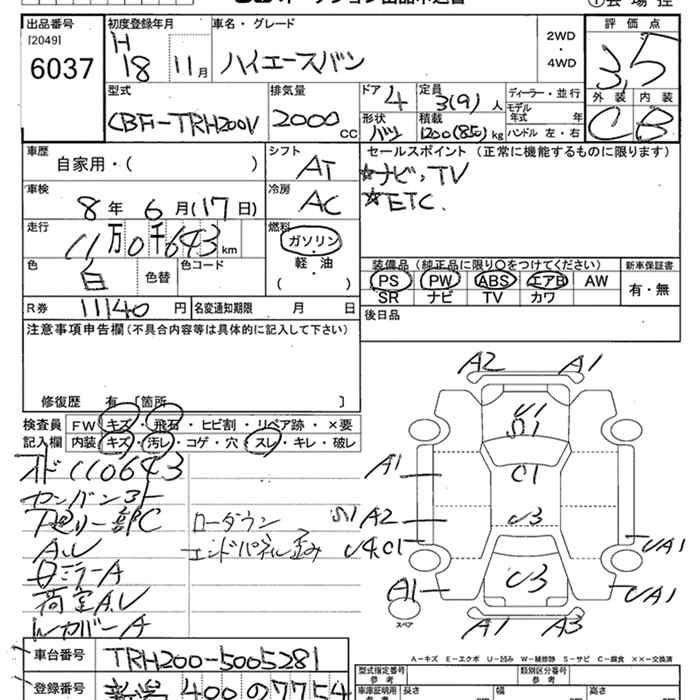 出品番号 初度登録年月 車名・グレード 評価点
[2049] H
6037 18 11月 ハイエースバン 2WD・4WD 3.5
外装 内装
C B
型式 排気量 ドア 定員 ディーラー・並行
CBF-TRH200V 2000cc 4 3(9)人 モデル年式 年
形状 積載 ハンドル 左・右
バン 1200(850)kg
車歴 シフト セールスポイント(正常に機能するものに限ります)
自家用・( ) AT ☆ナビ,TV
車検 冷房 ☆ETC.
8年 6月(17日) AC
走行 燃料
11万0千643km ガソリン・軽油・( )
色 色替 色コード 装備品(純正品に限り○をつけてください) 新車保証書
白 PS PW ABS エアB AW 有・無
SR ナビ TV カワ
R券 11140円 名変通知期限 月 日 後日品
注意事項申告欄(不具合内容等は具体的に記入して下さい)
修復歴 有 [箇所 ]
検査員 FW キズ・飛石・ヒビ割・リペア跡・×要
記入欄 内装 キズ・汚レ・コゲ・穴・スレ・キレ・破レ
オド110643
A.U
ローダウン
エンドパネル歪み
ロミラーA
荷室A.U
WカバーA
A2 A1
U1
S1
C1
A1
S1 A2 U3
U4 C1 UA1
U3
A1 UA1
スペア
A1 A3
A-キズ E-エクボ U-凹み W-補修跡 S-サビ C-腐食 ××-交換済
車台番号 TRH200-5005281
登録番号 新潟400の7754
型式指定番号 参考 類別区分番号 参考
車庫証明用 参考 長さ 幅 高さ